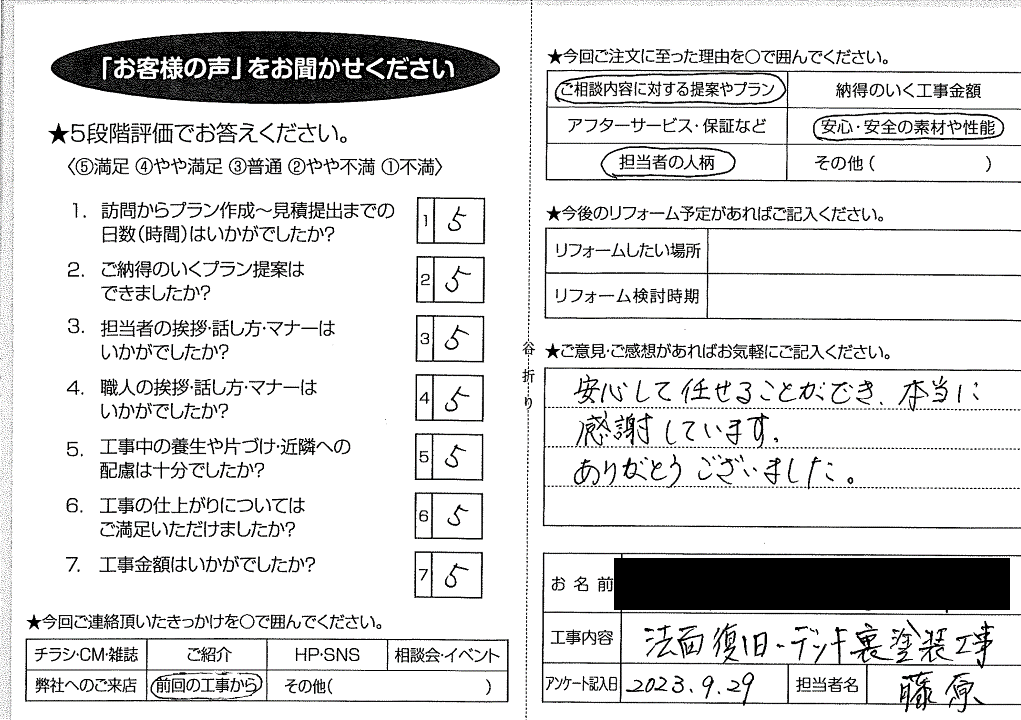 「お客様の声」をお聞かせください
★5段階評価でお答えください。
〈⑤満足 ④やや満足 ③普通 ②やや不満 ①不満〉
1. 訪問からプラン作成～見積提出までの
日数(時間)はいかがでしたか?
1 5
2. ご納得のいくプラン提案は
できましたか?
2 5
3. 担当者の挨拶・話し方・マナーは
いかがでしたか?
3 5
4. 職人の挨拶・話し方・マナーは
いかがでしたか?
4 5
5. 工事中の養生や片づけ・近隣への
配慮は十分でしたか?
5 5
6. 工事の仕上がりについては
ご満足いただけましたか?
6 5
7. 工事金額はいかがでしたか?
7 5
★今回ご連絡頂いたきっかけを〇で囲んでください。
チラシ・CM・雑誌 ご紹介 HP・SNS 相談会・イベント
弊社へのご来店 前回の工事から その他( )
谷折り
★今回ご注文に至った理由を〇で囲んでください。
ご相談内容に対する提案やプラン 納得のいく工事金額
アフターサービス・保証など 安心・安全の素材や性能
担当者の人柄 その他( )
★今後のリフォーム予定があればご記入ください。
リフォームしたい場所
リフォーム検討時期
★ご意見・ご感想があればお気軽にご記入ください。
安心して任せることができ、本当に
感謝しています。
ありがとうございました。
お名前
工事内容 法面復旧・デッキ裏塗装工事
アンケート記入日 2023.9.29 担当者名 藤原